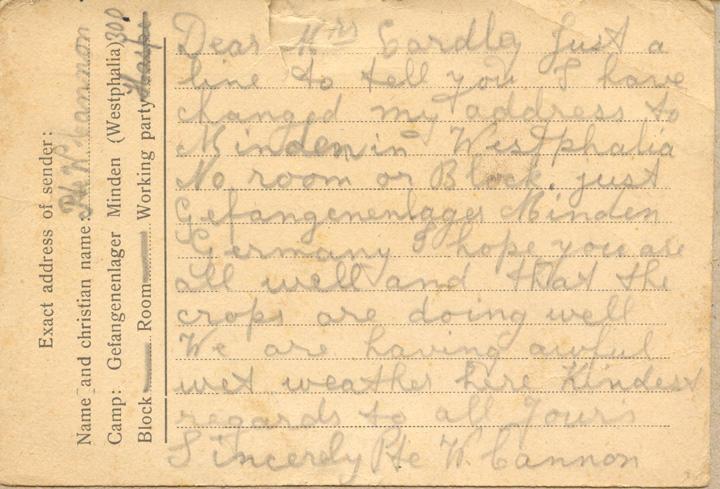 Exact address of sender:
Name and christian name: Pte W Cannon
Camp: Gefangenenlager Minden (Westphalia)
Block Room Working party
Dear Mrs Eardley Just a
line to tell you I have
changed my address to
Minden in Westphalia
No room or Block. just
Gefangenenlager Minden
Germany I hope you are
all well and that the
crops are doing well
We are having awful
wet weather here Kindest
regards to all Yours
Sincerely Pte W. Cannon